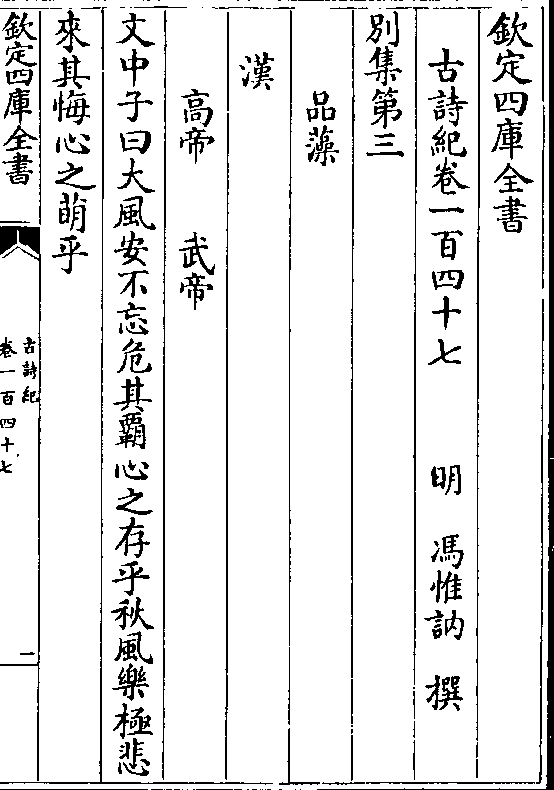 欽定四庫全書
古詩紀卷一百四十七 明 馮惟訥 撰
別集第三
品藻
漢
高帝 武帝
文中子曰大風安不忘危其霸心之存乎秋風樂極悲
來其悔心之萌乎
欽定四庫全書
古詩紀
卷一百四十七
一